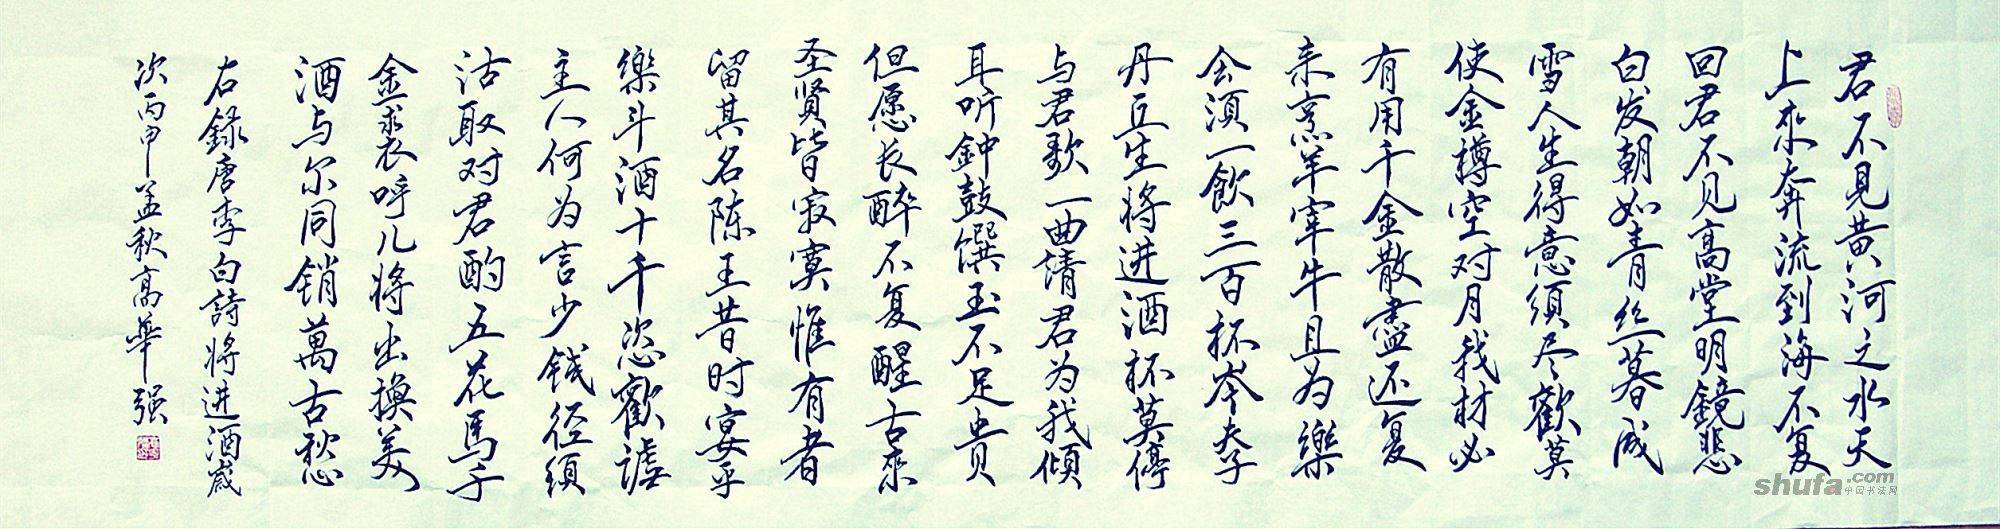 君不見黄河之水天
上来奔流到海不复
回君不见高堂明鏡悲
白发朝如青丝暮成
雪人生得意须尽歡莫
使金樽空对月我材必
有用千金散盡还复
来烹羊宰牛且为樂
会须一飲三百杯岑夫子
丹丘生将进酒杯莫停
与君歌一曲请君为我倾
耳听鈡鼓馔玉不足贵
但愿长醉不复醒古来
圣贤皆寂寞惟有者
留其名陈王昔时宴平
樂斗酒十千恣歡谑
主人何为言少钱径须
沽取对君酌五花馬千
金裘呼儿将出換美
酒与尔同销萬古愁
右録唐李白詩将进酒歲
次丙申孟秋高華强
shufa.com
中国书法网